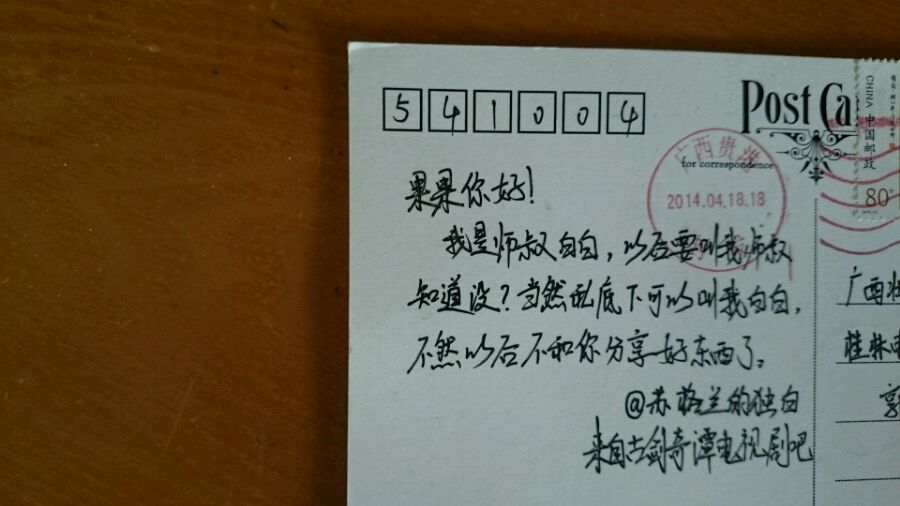 541004
Post Ca
for correspondence
CHINA 中国邮政
80
广西贵港
2014.04.18.18
果果你好!
我是师叔白白,以后要叫我师叔
知道没?当然私底下可以叫我白白,
不然以后不和你分享好东西了。
@苏格兰的独白
来自古剑奇谭电视剧吧
广西壮
桂林电
郭